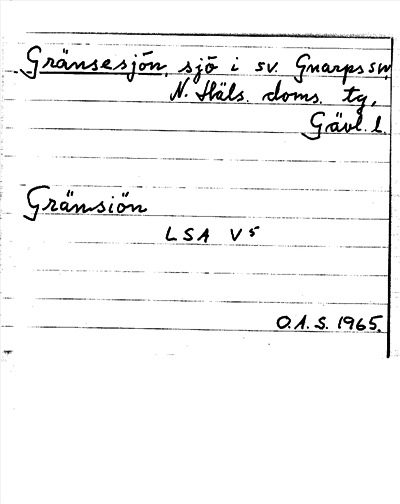 Gränsesjön, sjö i sv. Gnarps sn,
N. Häls. doms. tg,
Gävl. l.
Gränsiön
LSA V5
O.A.S. 1965.